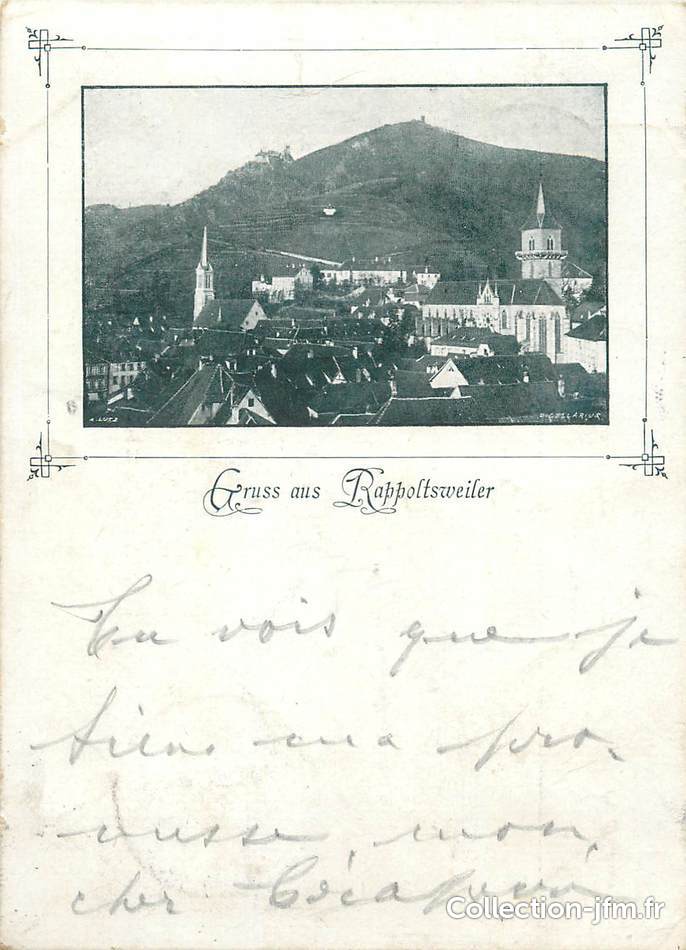 A. LUTZ
Gruss aus Rappoltsweiler
Tu vois que je
tiens ma pro-
messe, mon
cher
Collection-jfm.fr